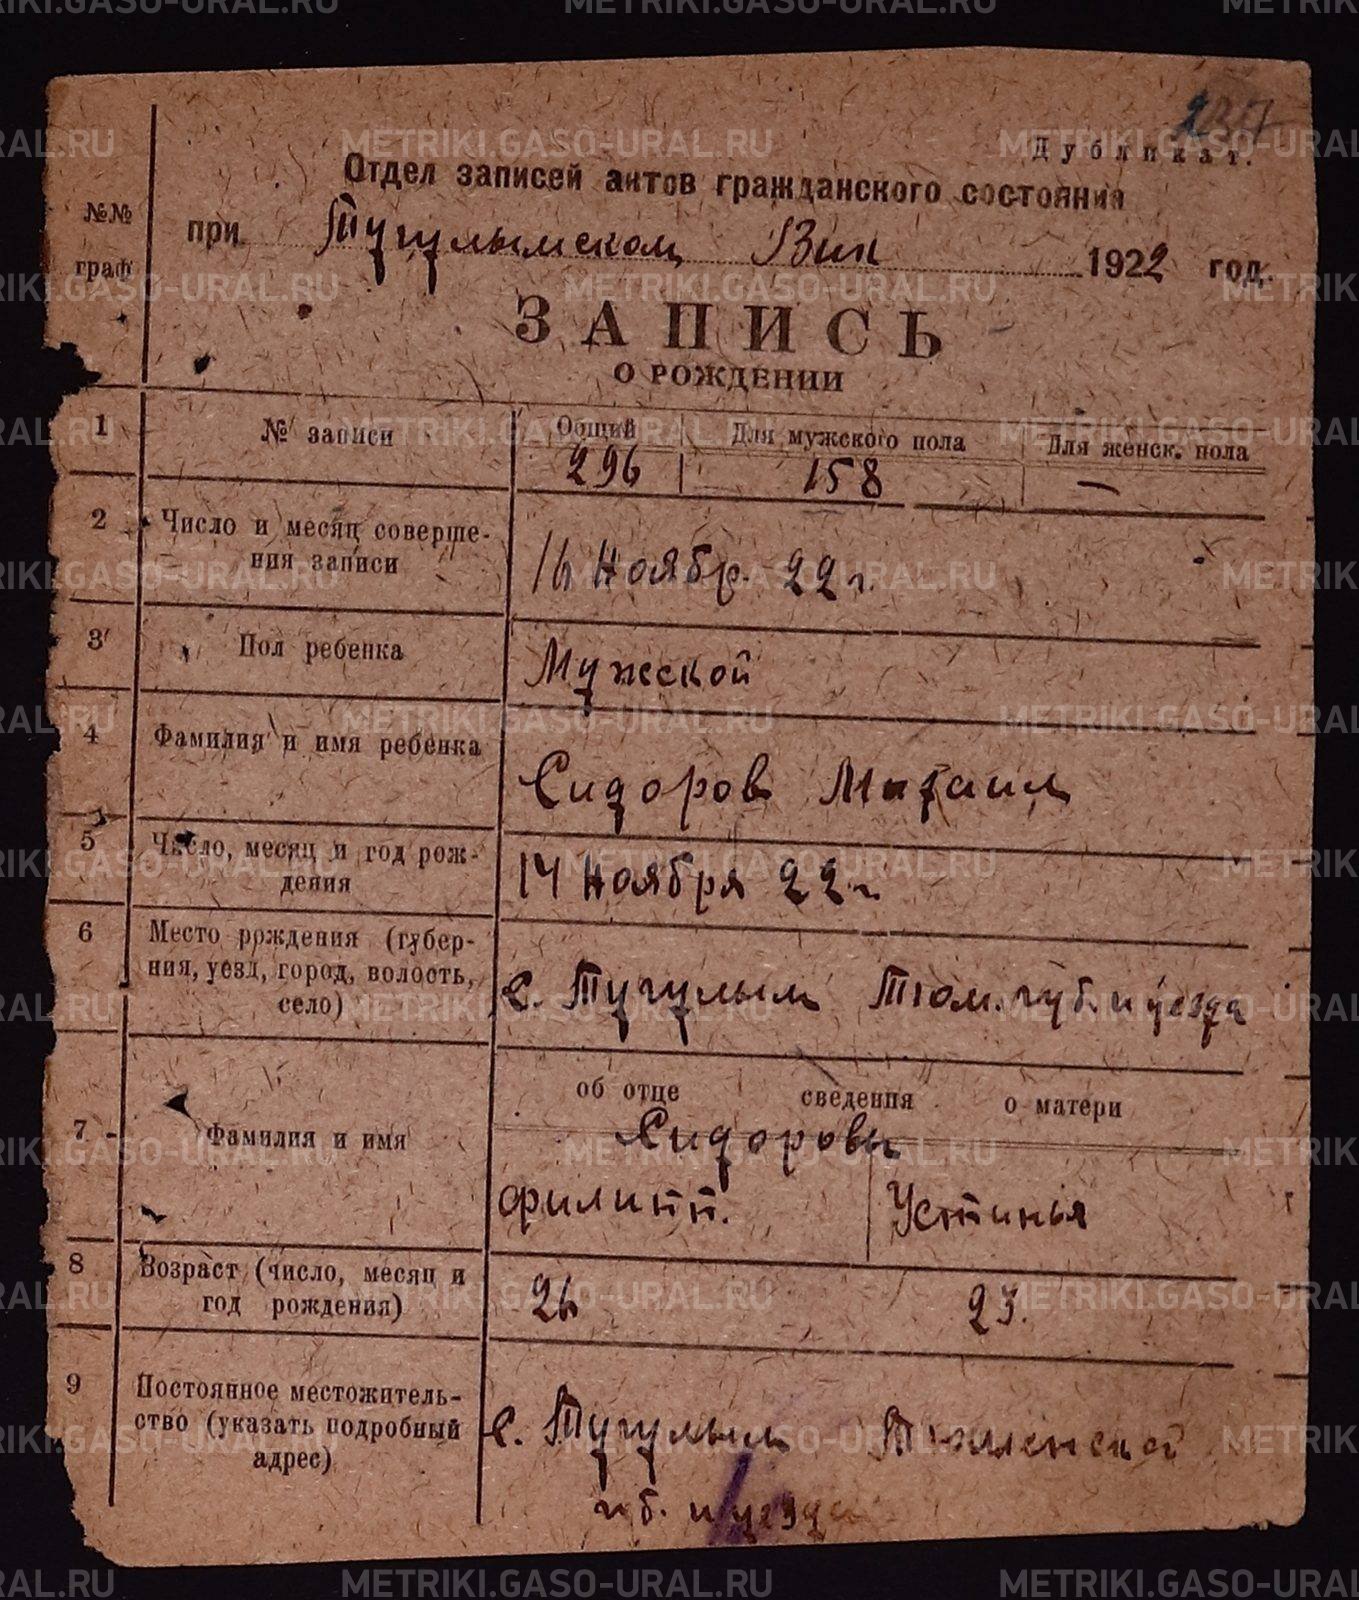 Дубликат.
Отдел записей актов гражданского состояния
при Тугулымском Вик 1922 год.
№№ граф
ЗАПИСЬ
О РОЖДЕНИИ
1 № записи Общий Для мужского пола Для женск. пола
296 158 —
2 Число и месяц соверше-
ния записи
16 Ноябр. 22 г.
3 Пол ребенка Мужской
4 Фамилия и имя ребенка Сидоров Михаил
5 Число, месяц и год рож-
дения
14 Ноября 22 г
6 Место рождения (губер-
ния, уезд, город, волость,
село)
с. Тугулым Тюм. губ. и уезда
об отце сведения о матери
7 Фамилия и имя Сидоровы
Филипп. Устинья
8 Возраст (число, месяц и
год рождения)
26 23.
9 Постоянное местожитель-
ство (указать подробный
адрес)
с. Тугулым Тюменской
губ. и уезда
METRIKI.GASO-URAL.RU